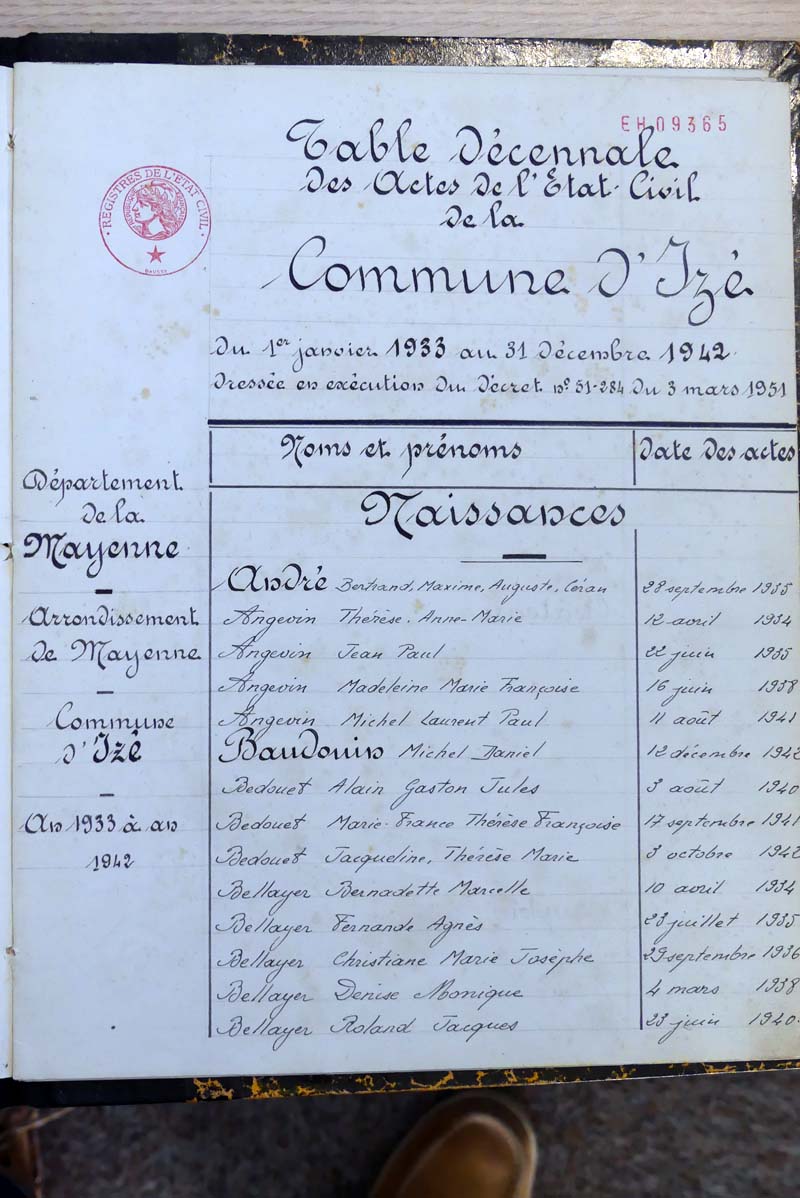 EH09365
Table Décennale
des Actes de l'Etat-Civil
de la
Commune d'Izé
du 1er janvier 1933 au 31 décembre 1942.
dressée en exécution du décret no 51-284 du 3 mars 1951
REGISTRES DE L'ETAT CIVIL
Département
de la
Mayenne
Arrondissement
de Mayenne
Commune
d'Izé
An 1933 à an
1942
Noms et prénoms Date des actes
Naissances
André Bertrand, Maxime, Auguste, Céran 28 septembre 1935
Angevin Thérèse. Anne-Marie 12 avril 1934
Angevin Jean Paul 22 juin 1935
Angevin Madeleine Marie Françoise 16 juin 1938
Angevin Michel Laurent Paul 11 août 1941
Baudouin Michel Daniel 12 décembre 1942
Bedouet Alain Gaston Jules 3 août 1940
Bedouet Marie-France Thérèse Françoise 17 septembre 1941
Bedouet Jacqueline, Thérèse Marie 3 octobre 1942
Bellayer Bernadette Marcelle 10 avril 1934
Bellayer Fernande Agnès 23 juillet 1935
Bellayer Christiane Marie Josèphe 29 septembre 1936
Bellayer Denise Monique 4 mars 1938
Bellayer Roland Jacques 23 juin 1940